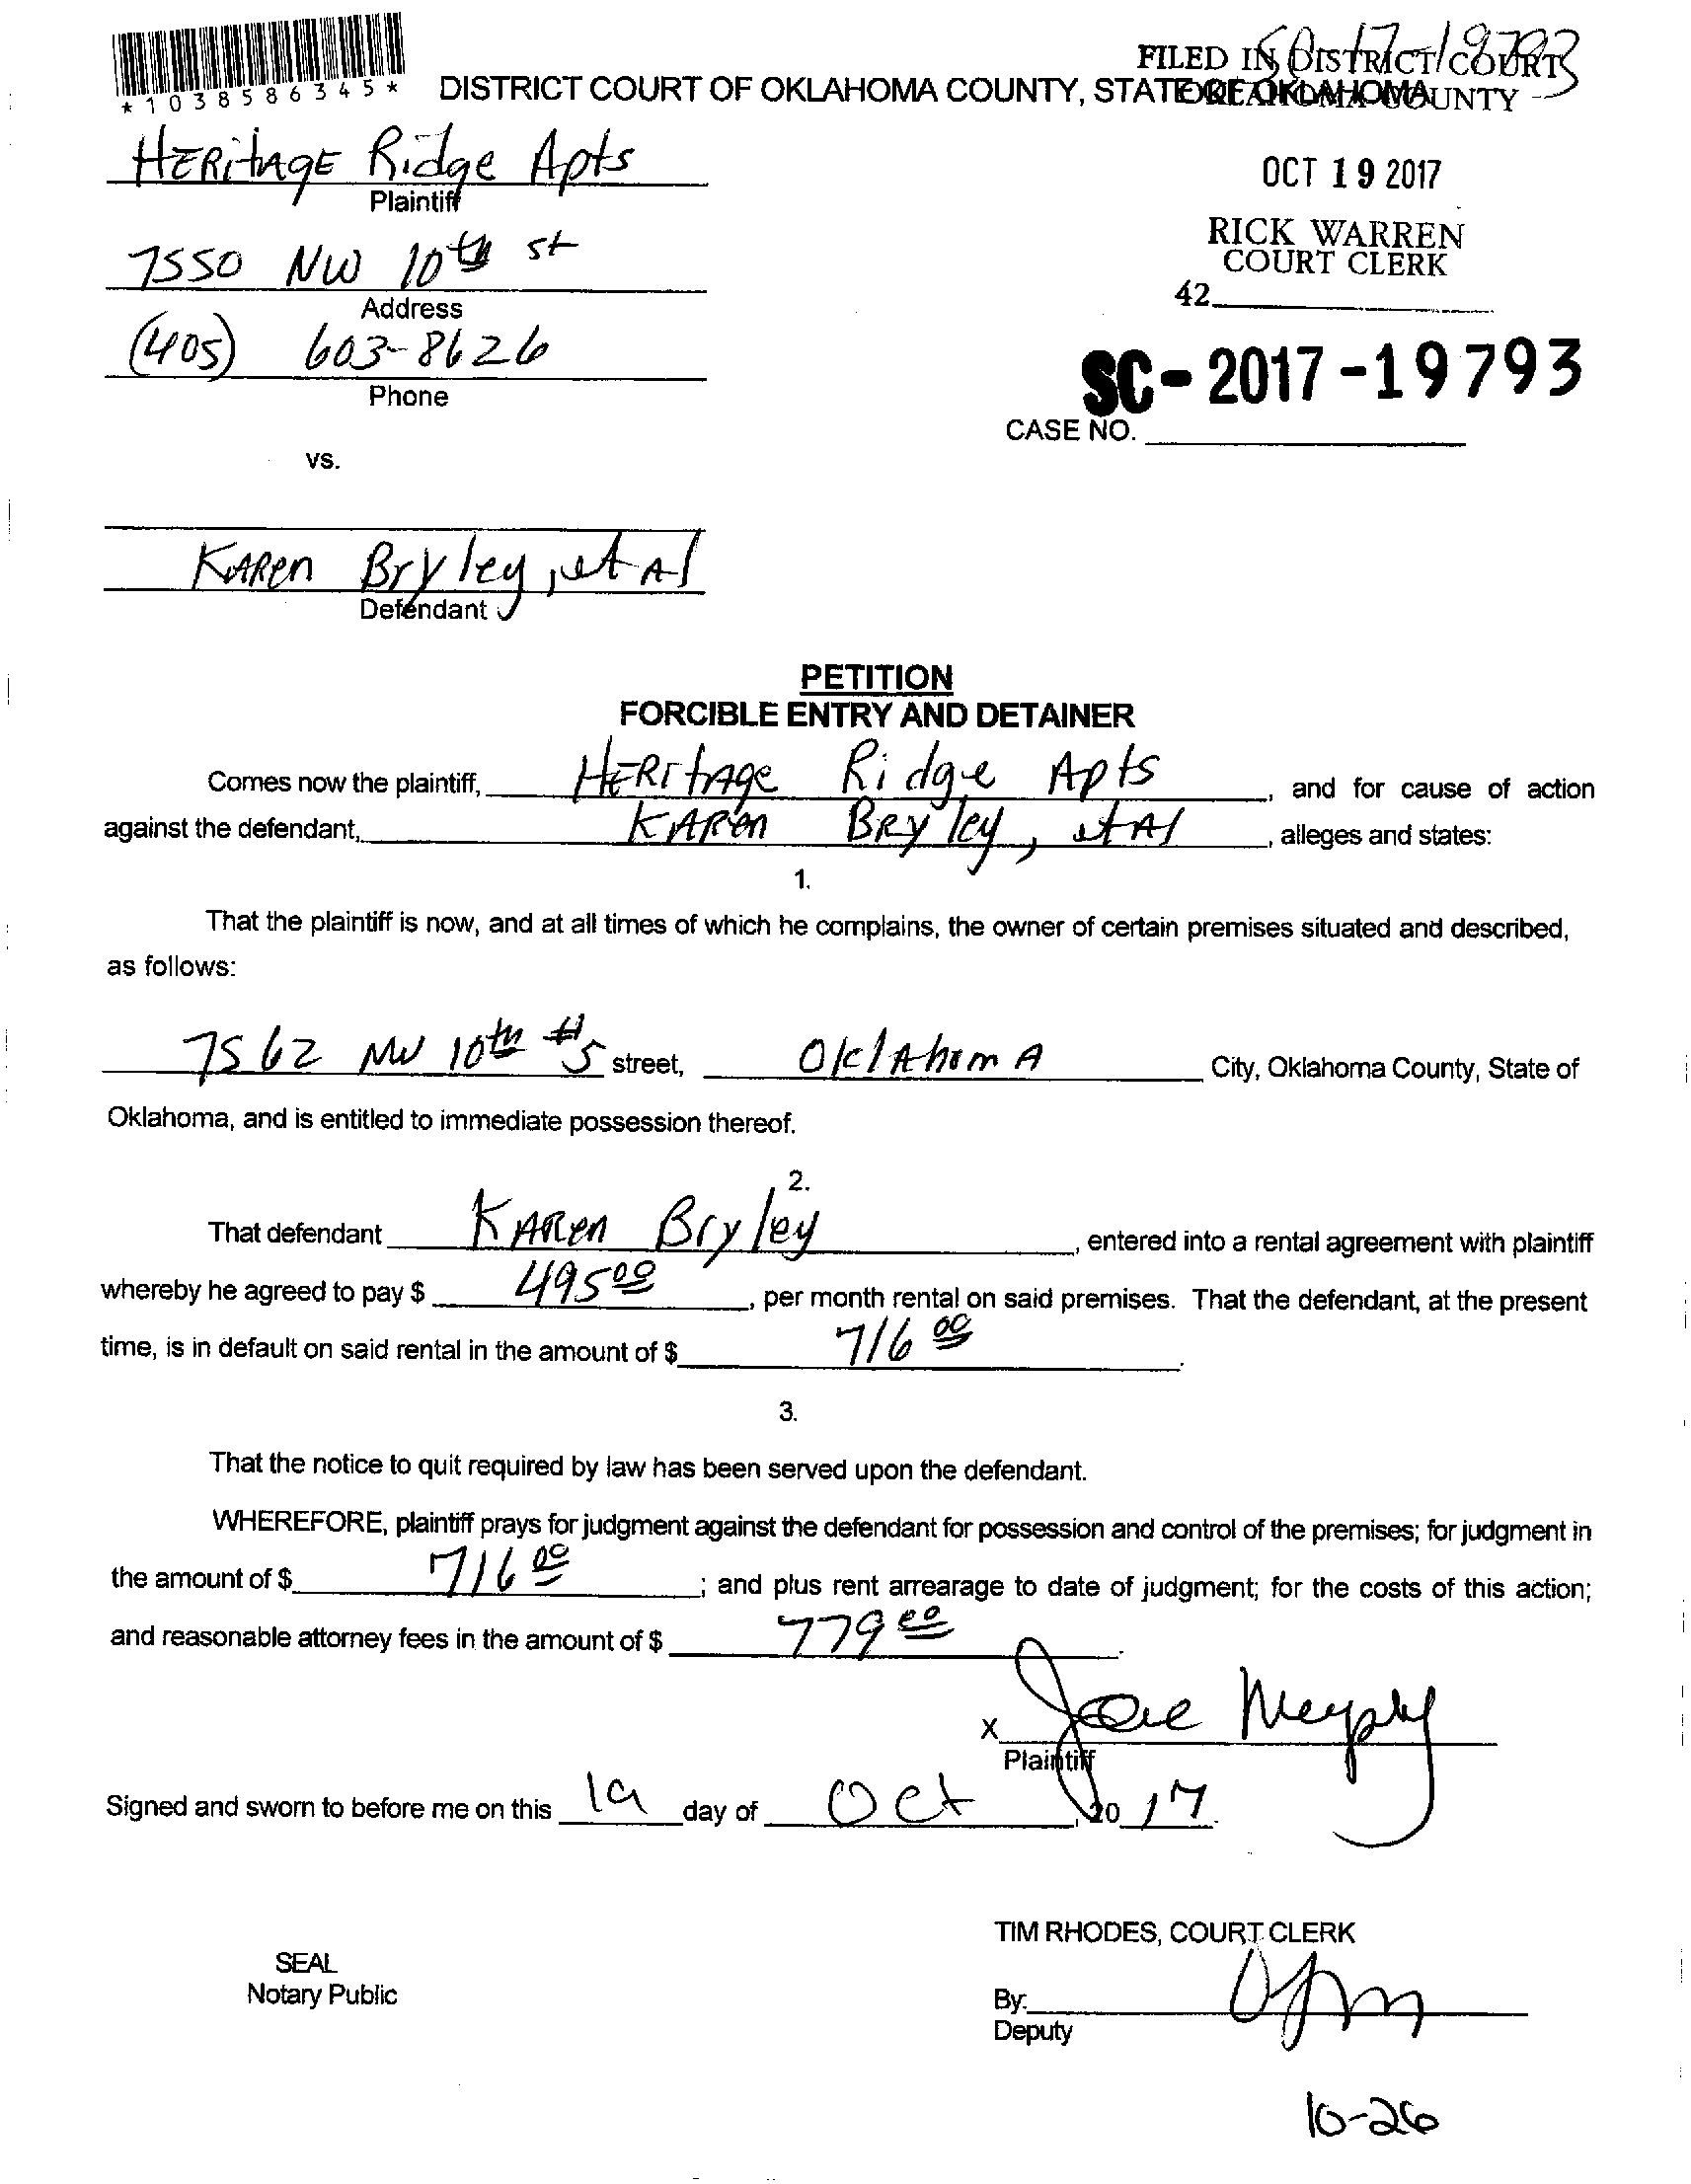 SC-17-19793
FILED IN DISTRICT COURT
*1038586345*
DISTRICT COURT OF OKLAHOMA COUNTY, STATE OF OKLAHOMA
OKLAHOMA COUNTY
HERitAgE Ridge Apts
Plaintiff
OCT 19 2017
RICK WARREN
COURT CLERK
7550 NW 10th st
Address
42
(405) 603-8626
Phone
SC-2017-19793
CASE NO.
vs.
KAREn Bryley, et Al
Defendant
PETITION
FORCIBLE ENTRY AND DETAINER
Comes now the plaintiff, HERitAge Ridge Apts, and for cause of action
against the defendant, KAREn BRyley, et Al, alleges and states:
1.
That the plaintiff is now, and at all times of which he complains, the owner of certain premises situated and described,
as follows:
7562 NW 10th #5 street, OklAhomA City, Oklahoma County, State of
Oklahoma, and is entitled to immediate possession thereof.
2.
That defendant KAREn Bryley, entered into a rental agreement with plaintiff
whereby he agreed to pay $ 495 00, per month rental on said premises. That the defendant, at the present
time, is in default on said rental in the amount of $ 716 00.
3.
That the notice to quit required by law has been served upon the defendant.
WHEREFORE, plaintiff prays for judgment against the defendant for possession and control of the premises; for judgment in
the amount of $ 716 00; and plus rent arrearage to date of judgment; for the costs of this action;
and reasonable attorney fees in the amount of $ 779 00.
X
Plaintiff
Signed and sworn to before me on this 19 day of Oct, 20 17.
TIM RHODES, COURT CLERK
SEAL
Notary Public
By:
Deputy
10-26